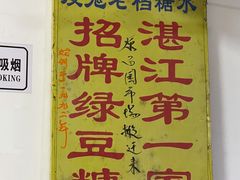 老档糖水
湛江第一家
原马园市场搬迁来
招牌绿豆糖
始创于一九八二年
吸烟
OKING